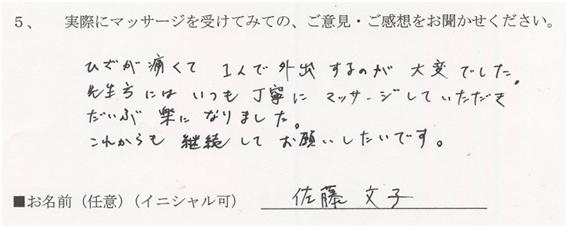 5、 実際にマッサージを受けてみての、ご意見・ご感想をお聞かせください。
ひざが痛くて 1人で外出するのが 大変でした。
先生方には いつも丁寧に マッサージしていただき
だいぶ 楽に なりました。
これからも 継続して お願いしたいです。
■お名前（任意）（イニシャル可） 佐藤 文子